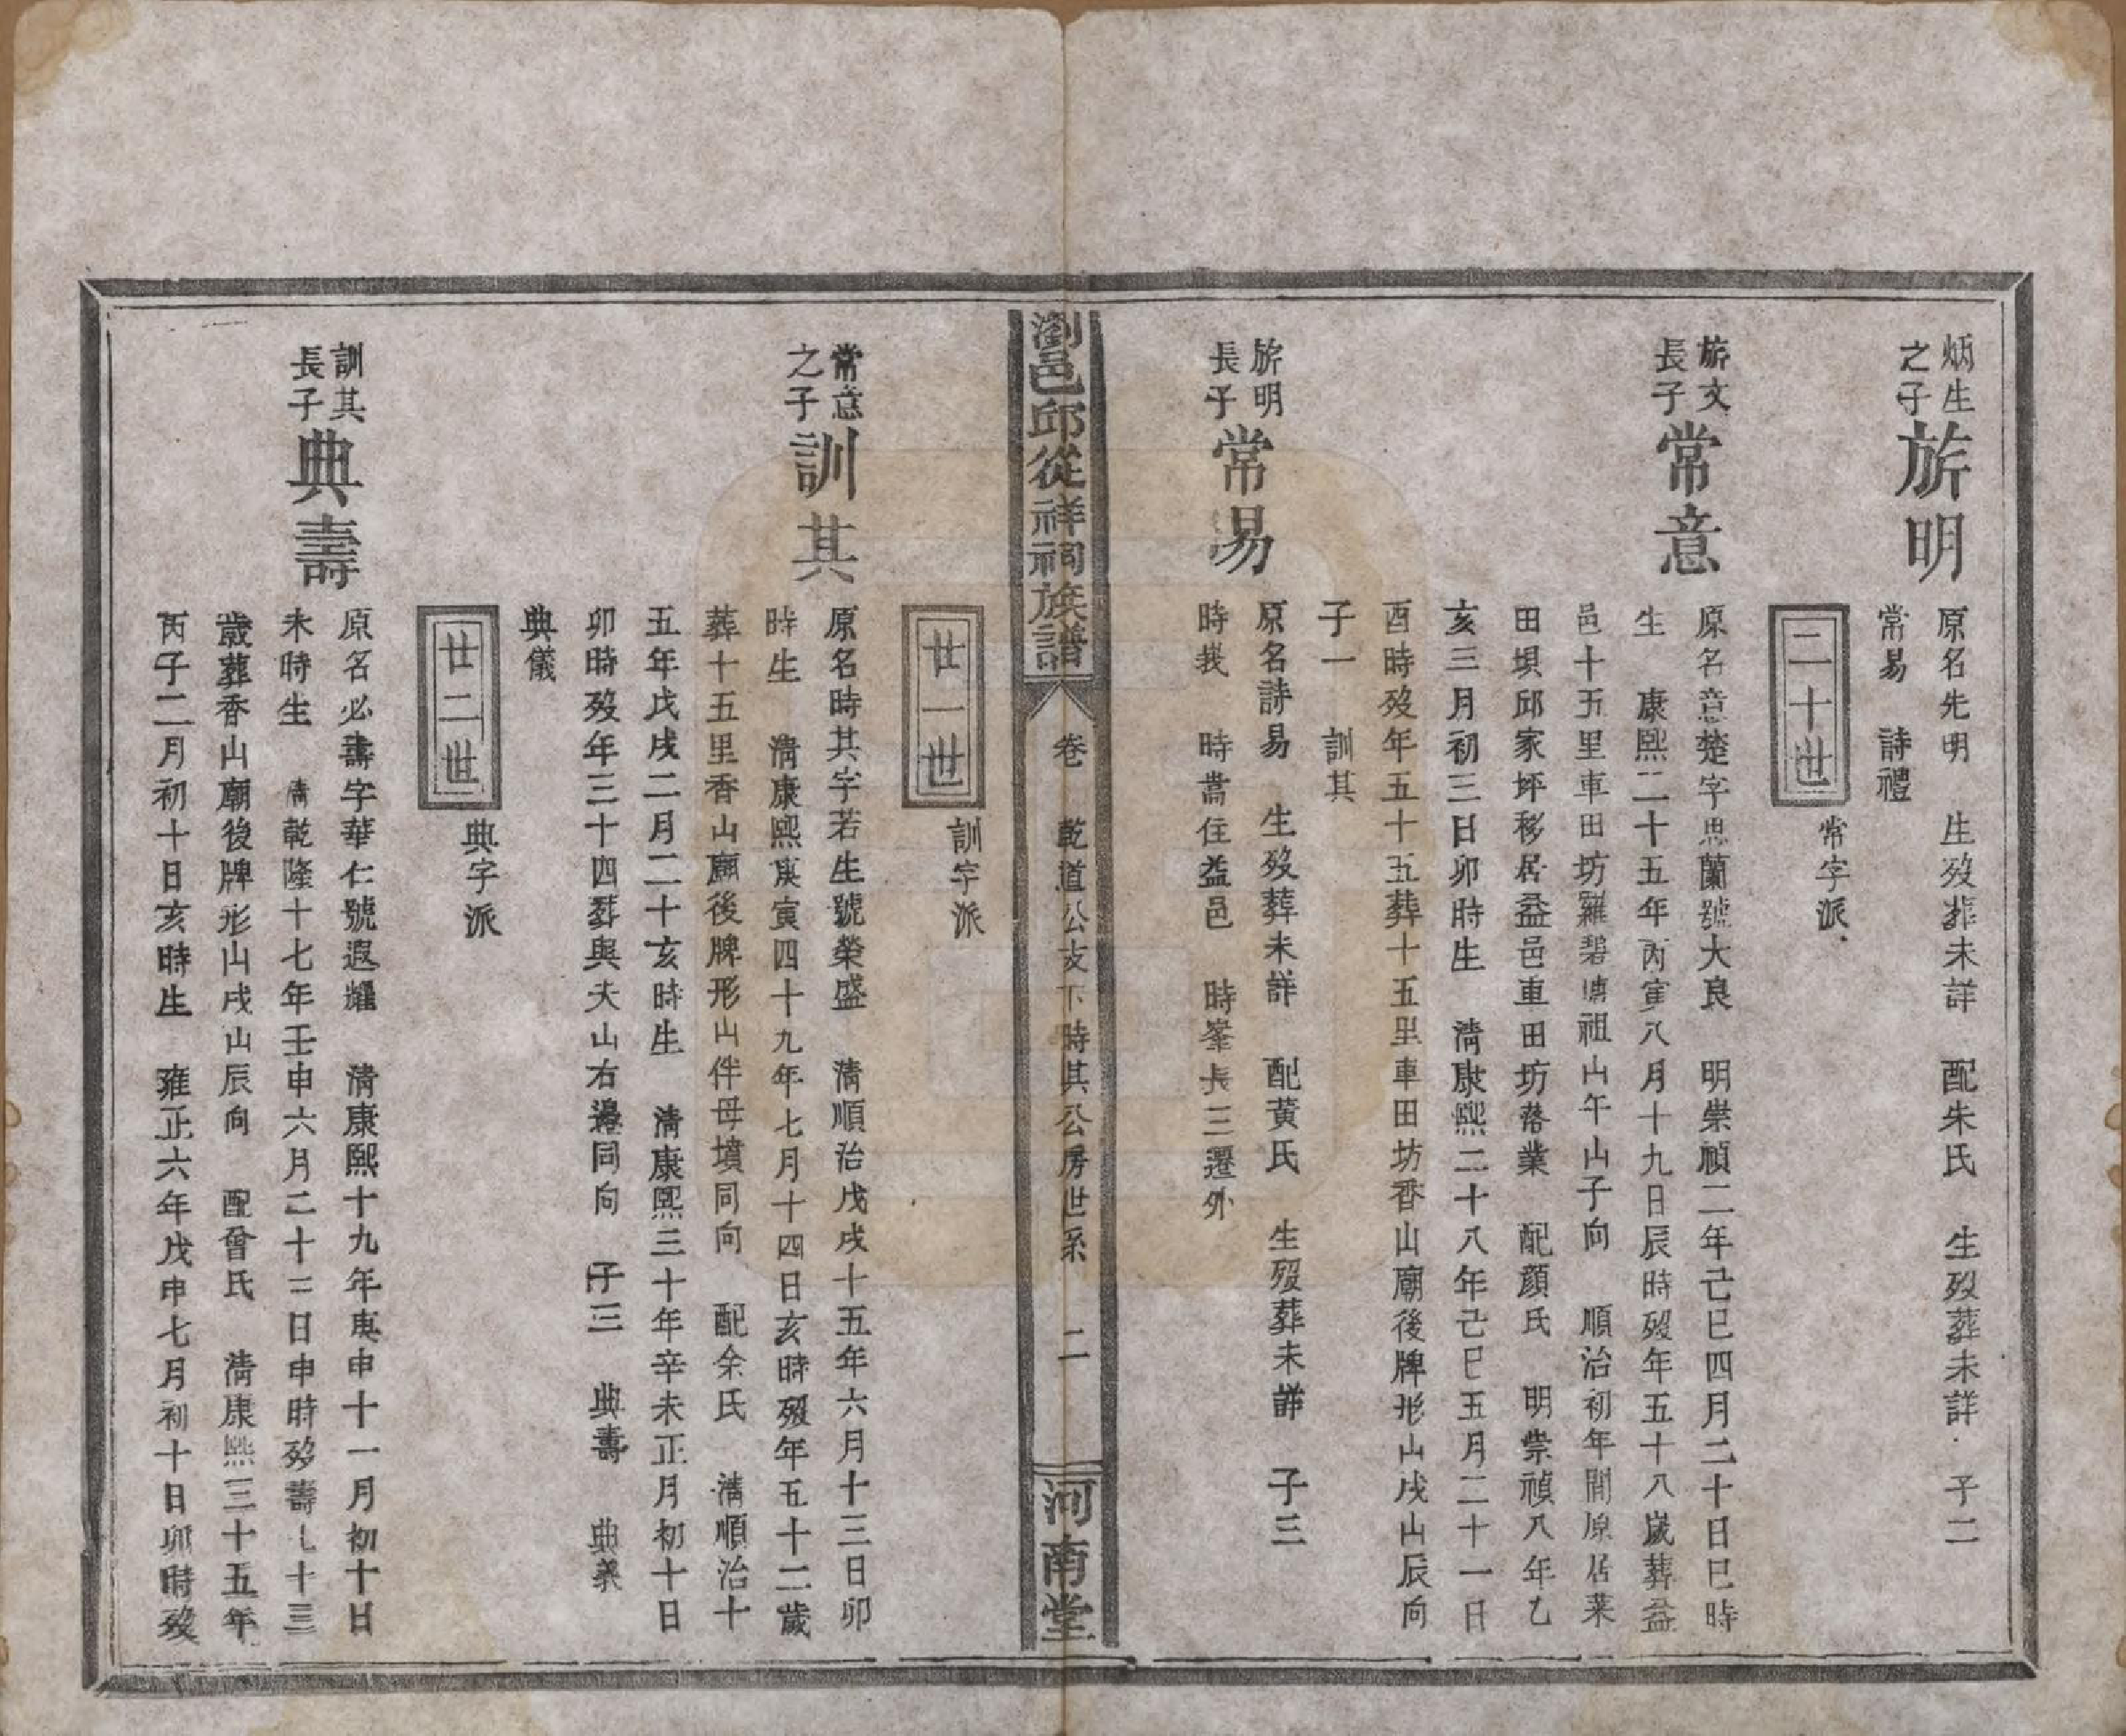 炳生
之子
旂明
原名先明　生歿葬未詳　配朱氏　生歿葬未詳　子二
常易　詩禮
二十世
常字派
旂文
長子
常意
原名意楚字思蘭號大良　明崇禎二年己巳四月二十日巳時
生　康熙二十五年丙寅八月十九日辰時歿年五十八歲葬益
邑十五里車田坊羅碧塘祖山午山子向　順治初年間原居萊
田垻邱家坪移居益邑車田坊落業　配顏氏　明崇禎八年乙
亥三月初三日卯時生　淸康熙二十八年己巳五月二十一日
酉時歿年五十五葬十五里車田坊香山廟後牌形山戌山辰向
子一　訓其
旂明
長子
常易
原名詩易　生歿葬未詳　配黃氏　生歿葬未詳　子三
時栽　時蒿住益邑　時峯長三遷外
瀏邑邱從祥祠族譜
卷　乾道公支下時其公房世系　二
河南堂
廿一世
訓字派
常意
之子
訓其
原名時其字若生號榮盛　淸順治戊戌十五年六月十三日卯
時生　淸康熙庚寅四十九年七月十四日亥時歿年五十二歲
葬十五里香山廟後牌形山伴母墳同向　配余氏　淸順治十
五年戊戌二月二十亥時生　淸康熙三十年辛未正月初十日
卯時歿年三十四葬與夫山右邊同向　子三　典壽　典義
典儀
廿二世
典字派
訓其
長子
典壽
原名必壽字華仁號遐耀　淸康熙十九年庚申十一月初十日
未時生　淸乾隆十七年壬申六月二十三日申時歿壽七十三
歲葬香山廟後牌形山戌山辰向　配曾氏　淸康熙三十五年
丙子二月初十日亥時生　雍正六年戊申七月初十日卯時歿